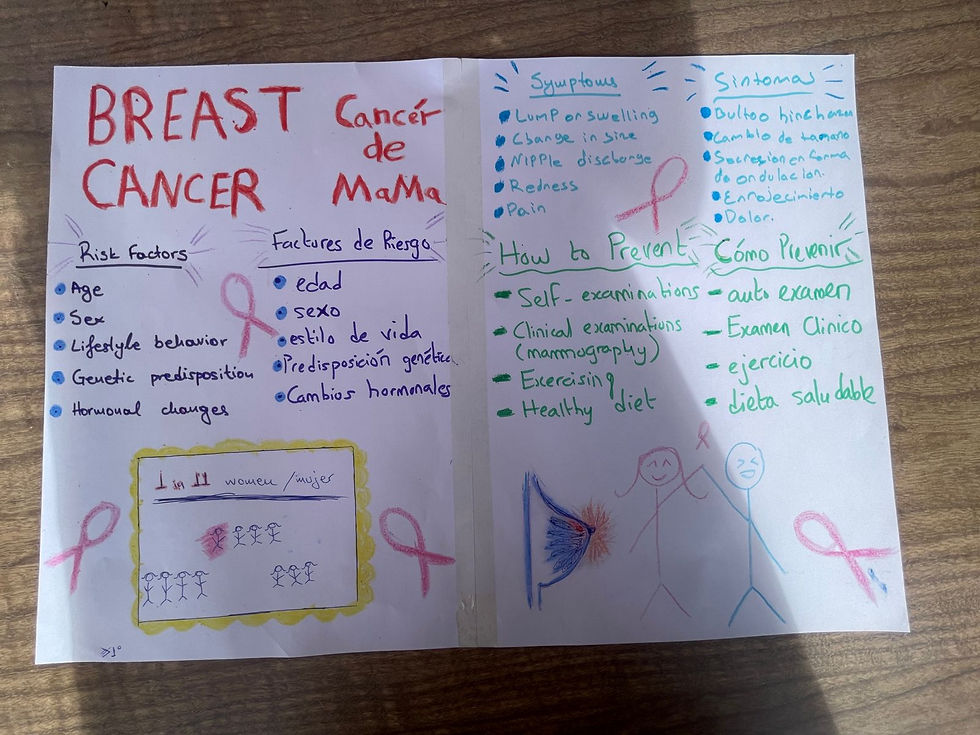 BREAST
CANCER
Cancér
de
MaMa
Risk Factors
Age
Sex
Lifestyle behavior
Genetic predisposition
Hormonal changes
Factures de Riesgo
edad
sexo
estilo de vida
Predisposición genética
Cambios hormonales
1 in 11 women /mujer
Symptoms
Lump or swelling
Change in size
Nipple discharge
Redness
Pain
Sintomas
Bultoo hinchazon
Cambio de tamano
Secresion en forma
de ondulacion.
Enrojecimiento
Dolor.
How to Prevent
Self-examinations
Clinical examinations
(mammography)
Exercising
Healthy diet
Cómo Prevenir
auto examen
Examen Clinico
ejercicio
dieta saludable